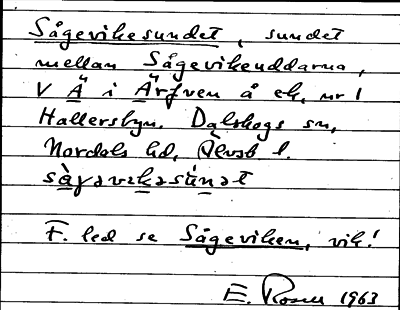 Sågevikesundet, sundet
mellan Sågevikenddarna,
V Ä i Ärfven å ek, nr 1
Hallersbyn. Dalskogs sn,
Nordals hd, Älvsb l.
F. led se Sågeviken, vik!
E. Rosen 1963